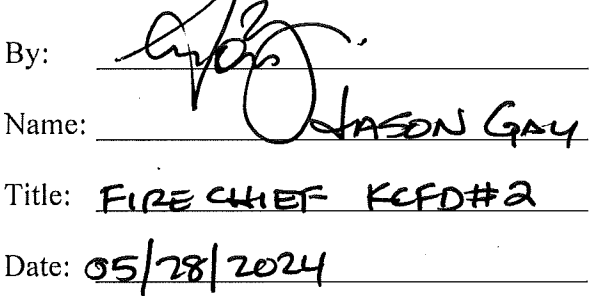 By:
Name: JASON GAY
Title: FIRE CHIEF KCFD#2
Date: 05/28/2024